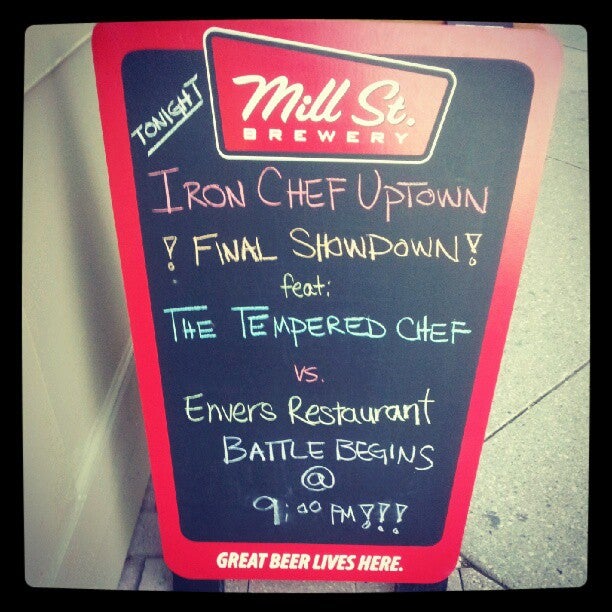 TONIGHT
Mill St.
BREWERY
IRON CHEF UPTOWN
! FINAL SHOWDOWN!
feat:
THE TEMPERED CHEF
vs.
Envers Restaurant
BATTLE BEGINS
@
9:00 PM!!!
GREAT BEER LIVES HERE.